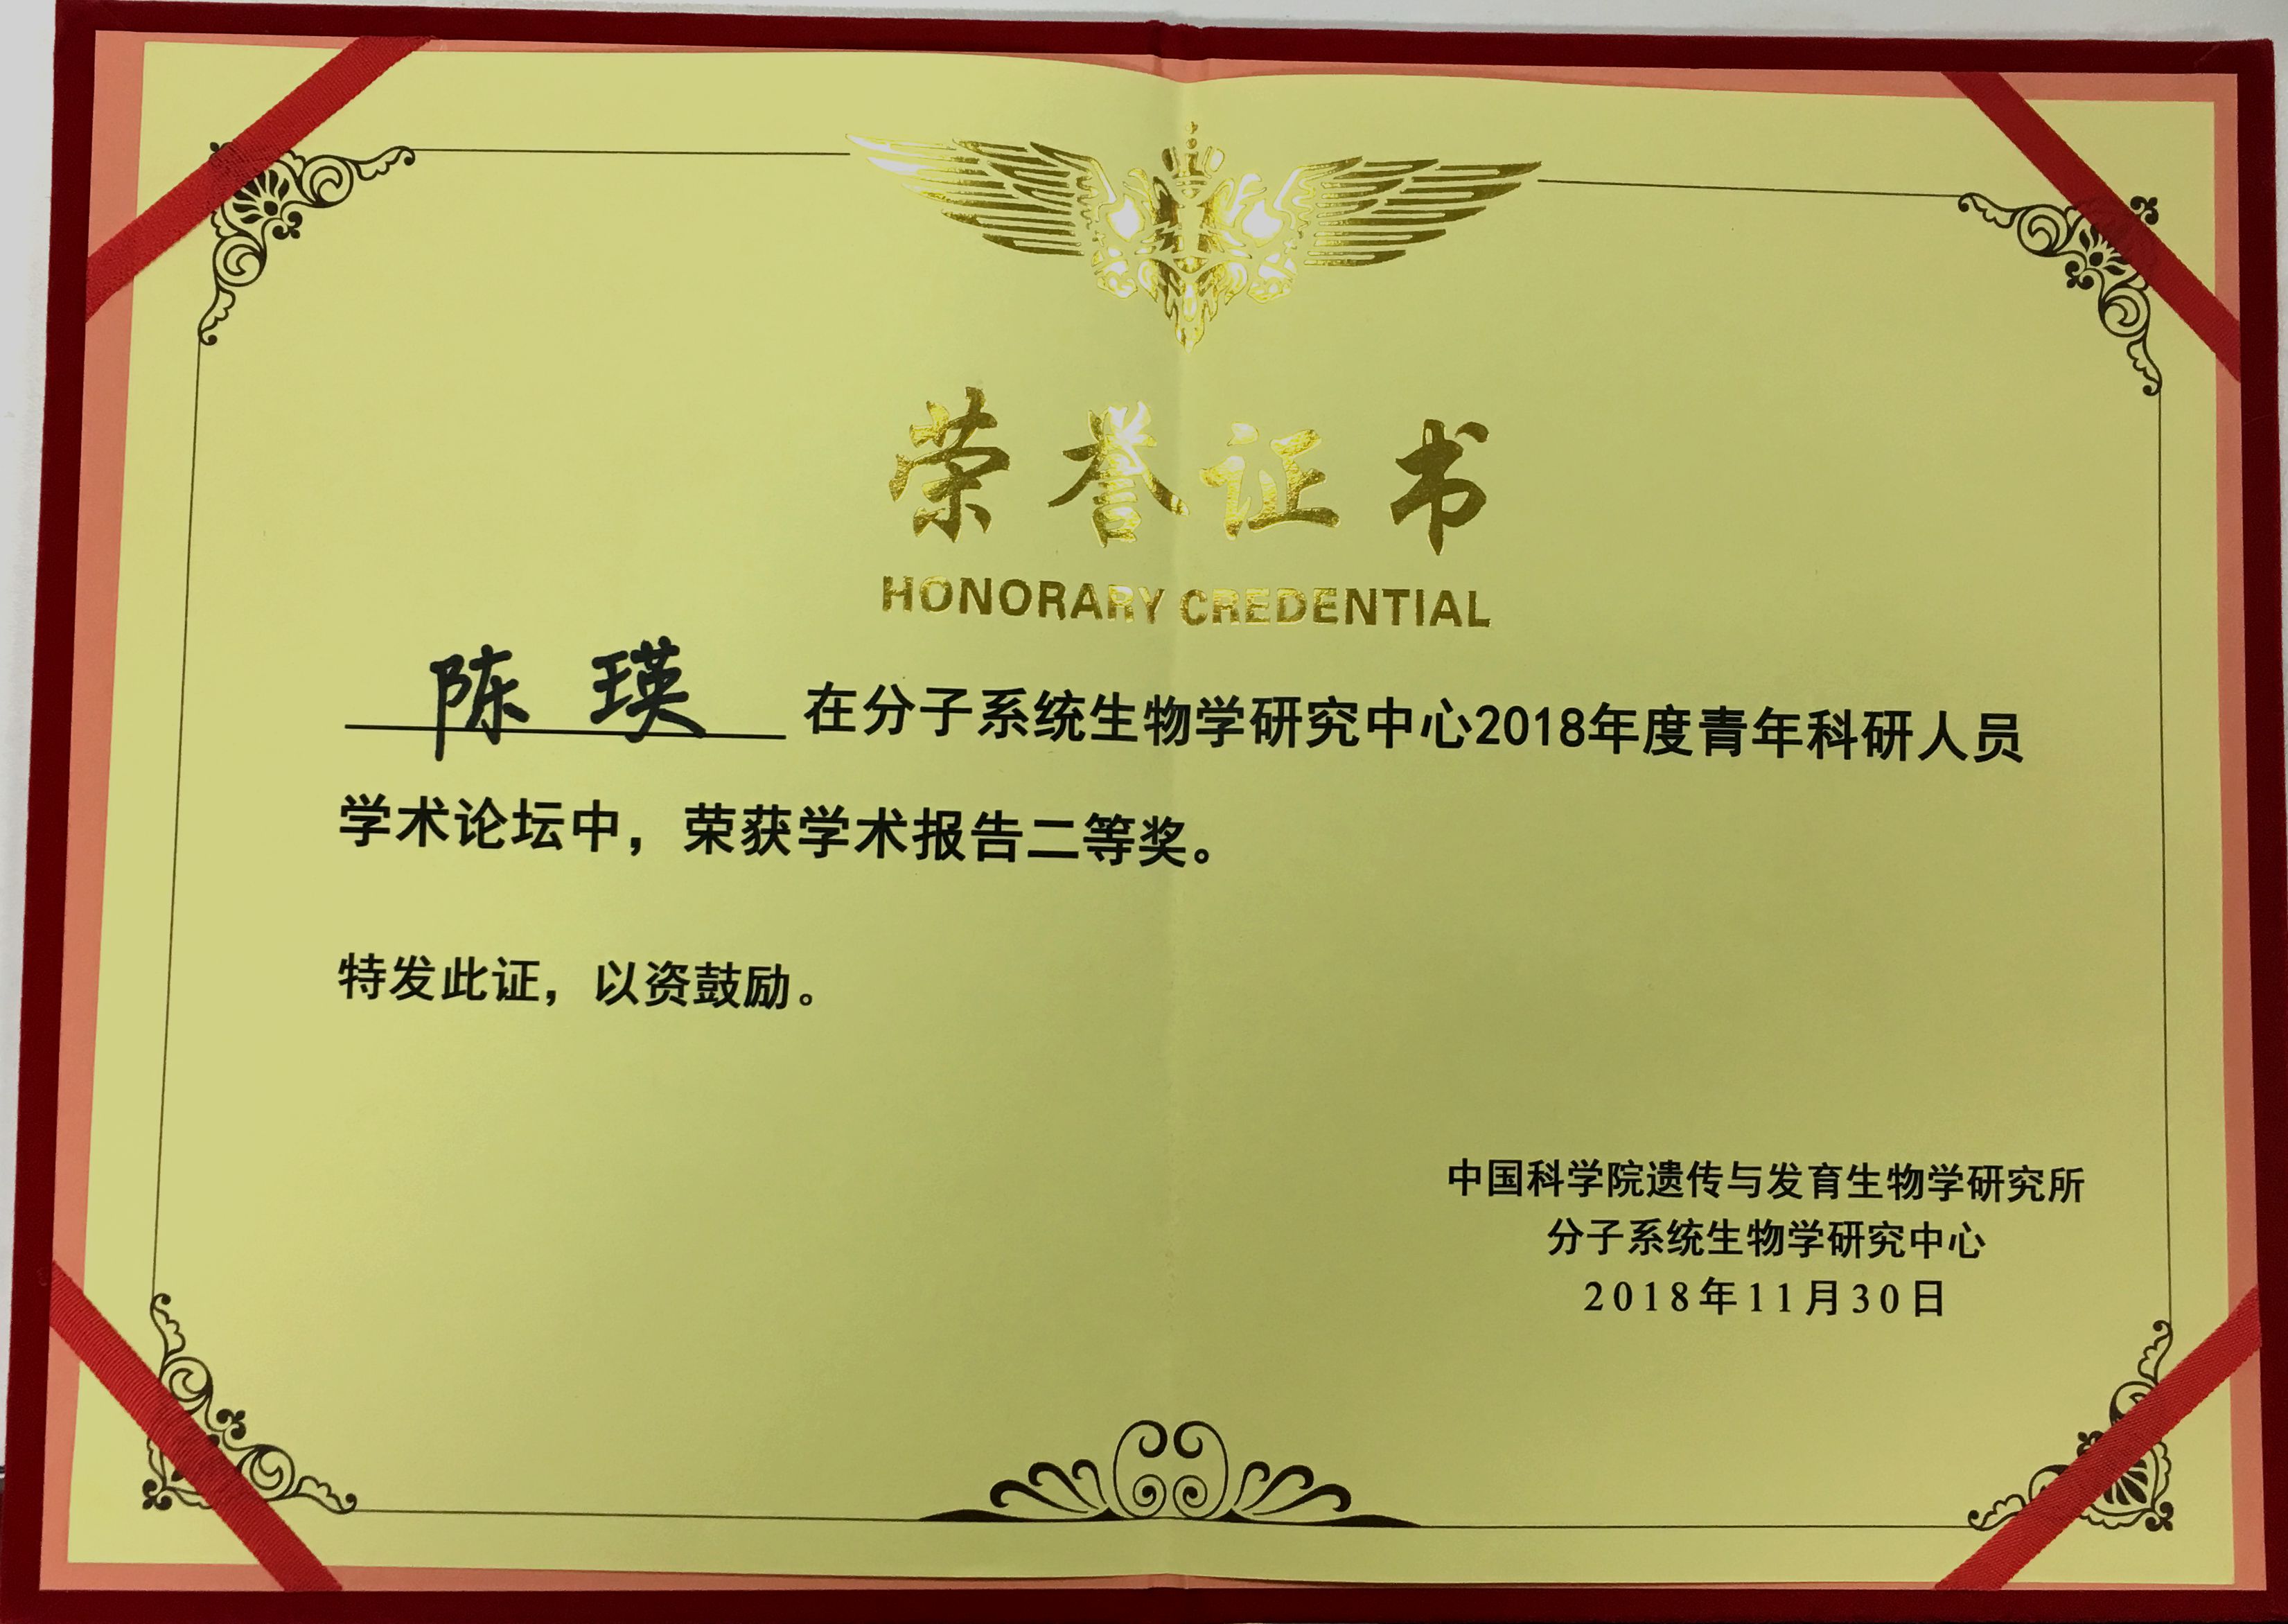 荣誉证书
HONORARY CREDENTIAL
陈瑛 在分子系统生物学研究中心2018年度青年科研人员
学术论坛中，荣获学术报告二等奖。
特发此证，以资鼓励。
中国科学院遗传与发育生物学研究所
分子系统生物学研究中心
2018年11月30日